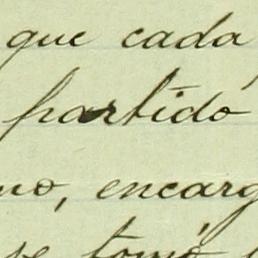 que cada
partido
no, encarg
se tomó